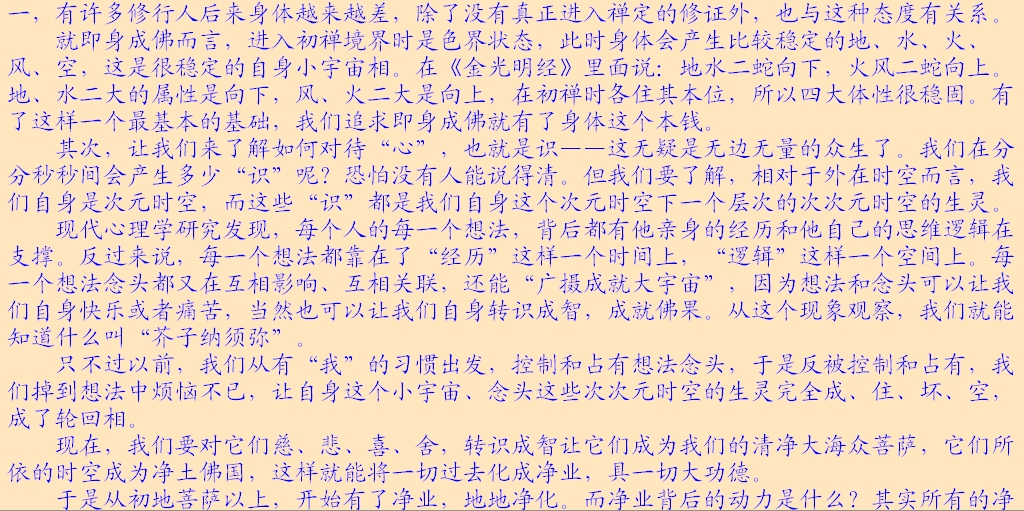 一，有许多修行人后来身体越来越差，除了没有真正进入禅定的修证外，也与这种态度有关系。
就即身成佛而言，进入初禅境界时是色界状态，此时身体会产生比较稳定的地、水、火、
风、空，这是很稳定的自身小宇宙相。在《金光明经》里面说：地水二蛇向下，火风二蛇向上。
地、水二大的属性是向下，风、火二大是向上，在初禅时各住其本位，所以四大体性很稳固。有
了这样一个最基本的基础，我们追求即身成佛就有了身体这个本钱。
其次，让我们来了解如何对待“心”，也就是识——这无疑是无边无量的众生了。我们在分
分秒秒间会产生多少“识”呢？恐怕没有人能说得清。但我们要了解，相对于外在时空而言，我
们自身是次元时空，而这些“识”都是我们自身这个次元时空下一个层次的次次元时空的生灵。
现代心理学研究发现，每个人的每一个想法，背后都有他亲身的经历和他自己的思维逻辑在
支撑。反过来说，每一个想法都靠在了“经历”这样一个时间上，“逻辑”这样一个空间上。每
一个想法念头都又在互相影响、互相关联，还能“广摄成就大宇宙”，因为想法和念头可以让我
们自身快乐或者痛苦，当然也可以让我们自身转识成智，成就佛果。从这个现象观察，我们就能
知道什么叫“芥子纳须弥”。
只不过以前，我们从有“我”的习惯出发，控制和占有想法念头，于是反被控制和占有，我
们掉到想法中烦恼不已，让自身这个小宇宙、念头这些次次元时空的生灵完全成、住、坏、空，
成了轮回相。
现在，我们要对它们慈、悲、喜、舍，转识成智让它们成为我们的清净大海众菩萨，它们所
依的时空成为净土佛国，这样就能将一切过去化成净业，具一切大功德。
于是从初地菩萨以上，开始有了净业，地地净化。而净业背后的动力是什么？其实所有的净